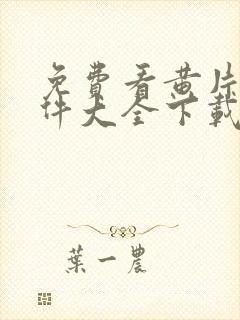 免費看黄片
件大全下載
葉一農